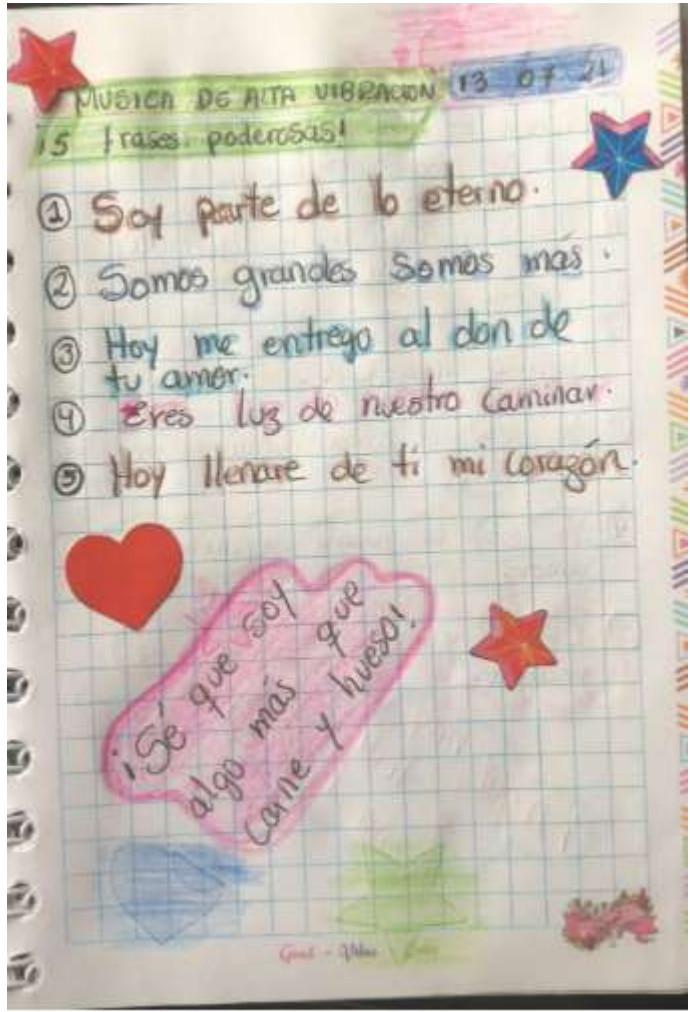 MUSICA DE ALTA VIBRACION 13 07 21
15 frases poderosas!
① Soy parte de lo eterno.
② Somos grandes somos más.
③ Hoy me entrego al don de
tu amor.
④ Eres luz de nuestro caminar.
⑤ Hoy llenare de ti mi corazón.
¡Sé que soy
algo más que
carne y hueso!
Good - Vibes